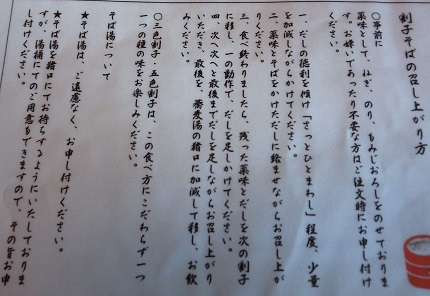 割子そばの召し上がり方
〇事前に
薬味として、ねぎ、のり、もみじおろしをのせておりま
す。お嫌いであったり不要な方はご注文時にお申し付け
ください。
一、だしの徳利を傾け「さっとひとまわし」程度、少量
を加減しながらかけてください。
二、薬味とそばをかけただしに絡ませながらお召し上が
りください。
三、食べ終わりましたら、残った薬味とだしを次の割子
に移し、一の動作で、だしを足しかけてください。
四、次へ次へと最後までだしを足しながらお召し上がり
いただき、最後を、蕎麦湯の猪口に加減して移し、お飲
みください。
〇三色割子、五色割子は、この食べ方にこだわらず一つ
一つの種の味をお楽しみください。
そば湯について
★そば湯は、ご遠慮なく、お申し付けください。
★そば湯を猪口にてお持ちするようにいたしておりま
すが、湯桶にてのご用意もできますので、その旨お申
し付けください。